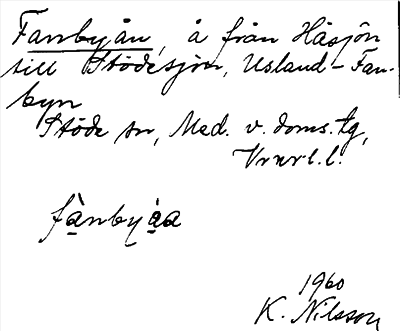 Fanbyån, å från Håsjön
till Stödesjön, Usland-Fan-
byn
Stöde sn, Med. v. doms. tg,
Vrnrl. l.
fànbyå̀a
1960
K. Nilsson